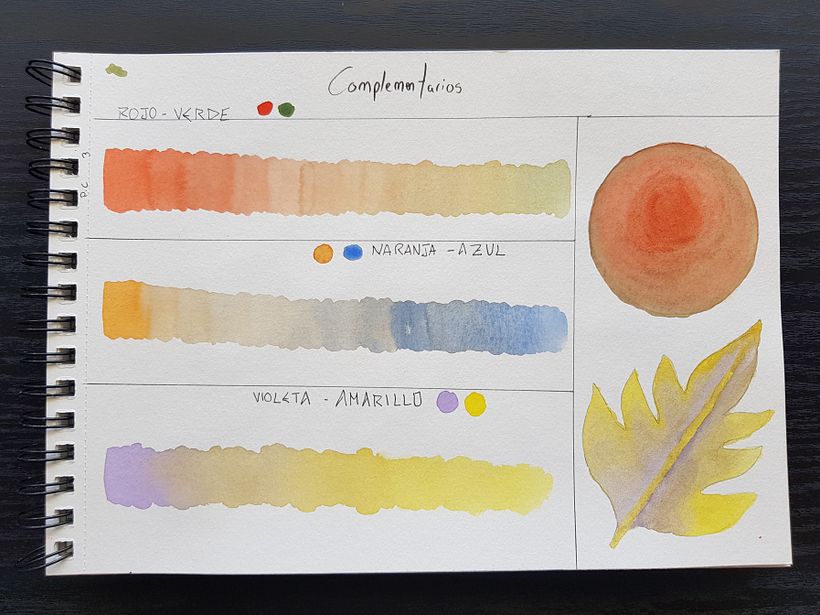 Complementarios
ROJO - VERDE
P.C. 3
NARANJA - AZUL
VIOLETA - AMARILLO